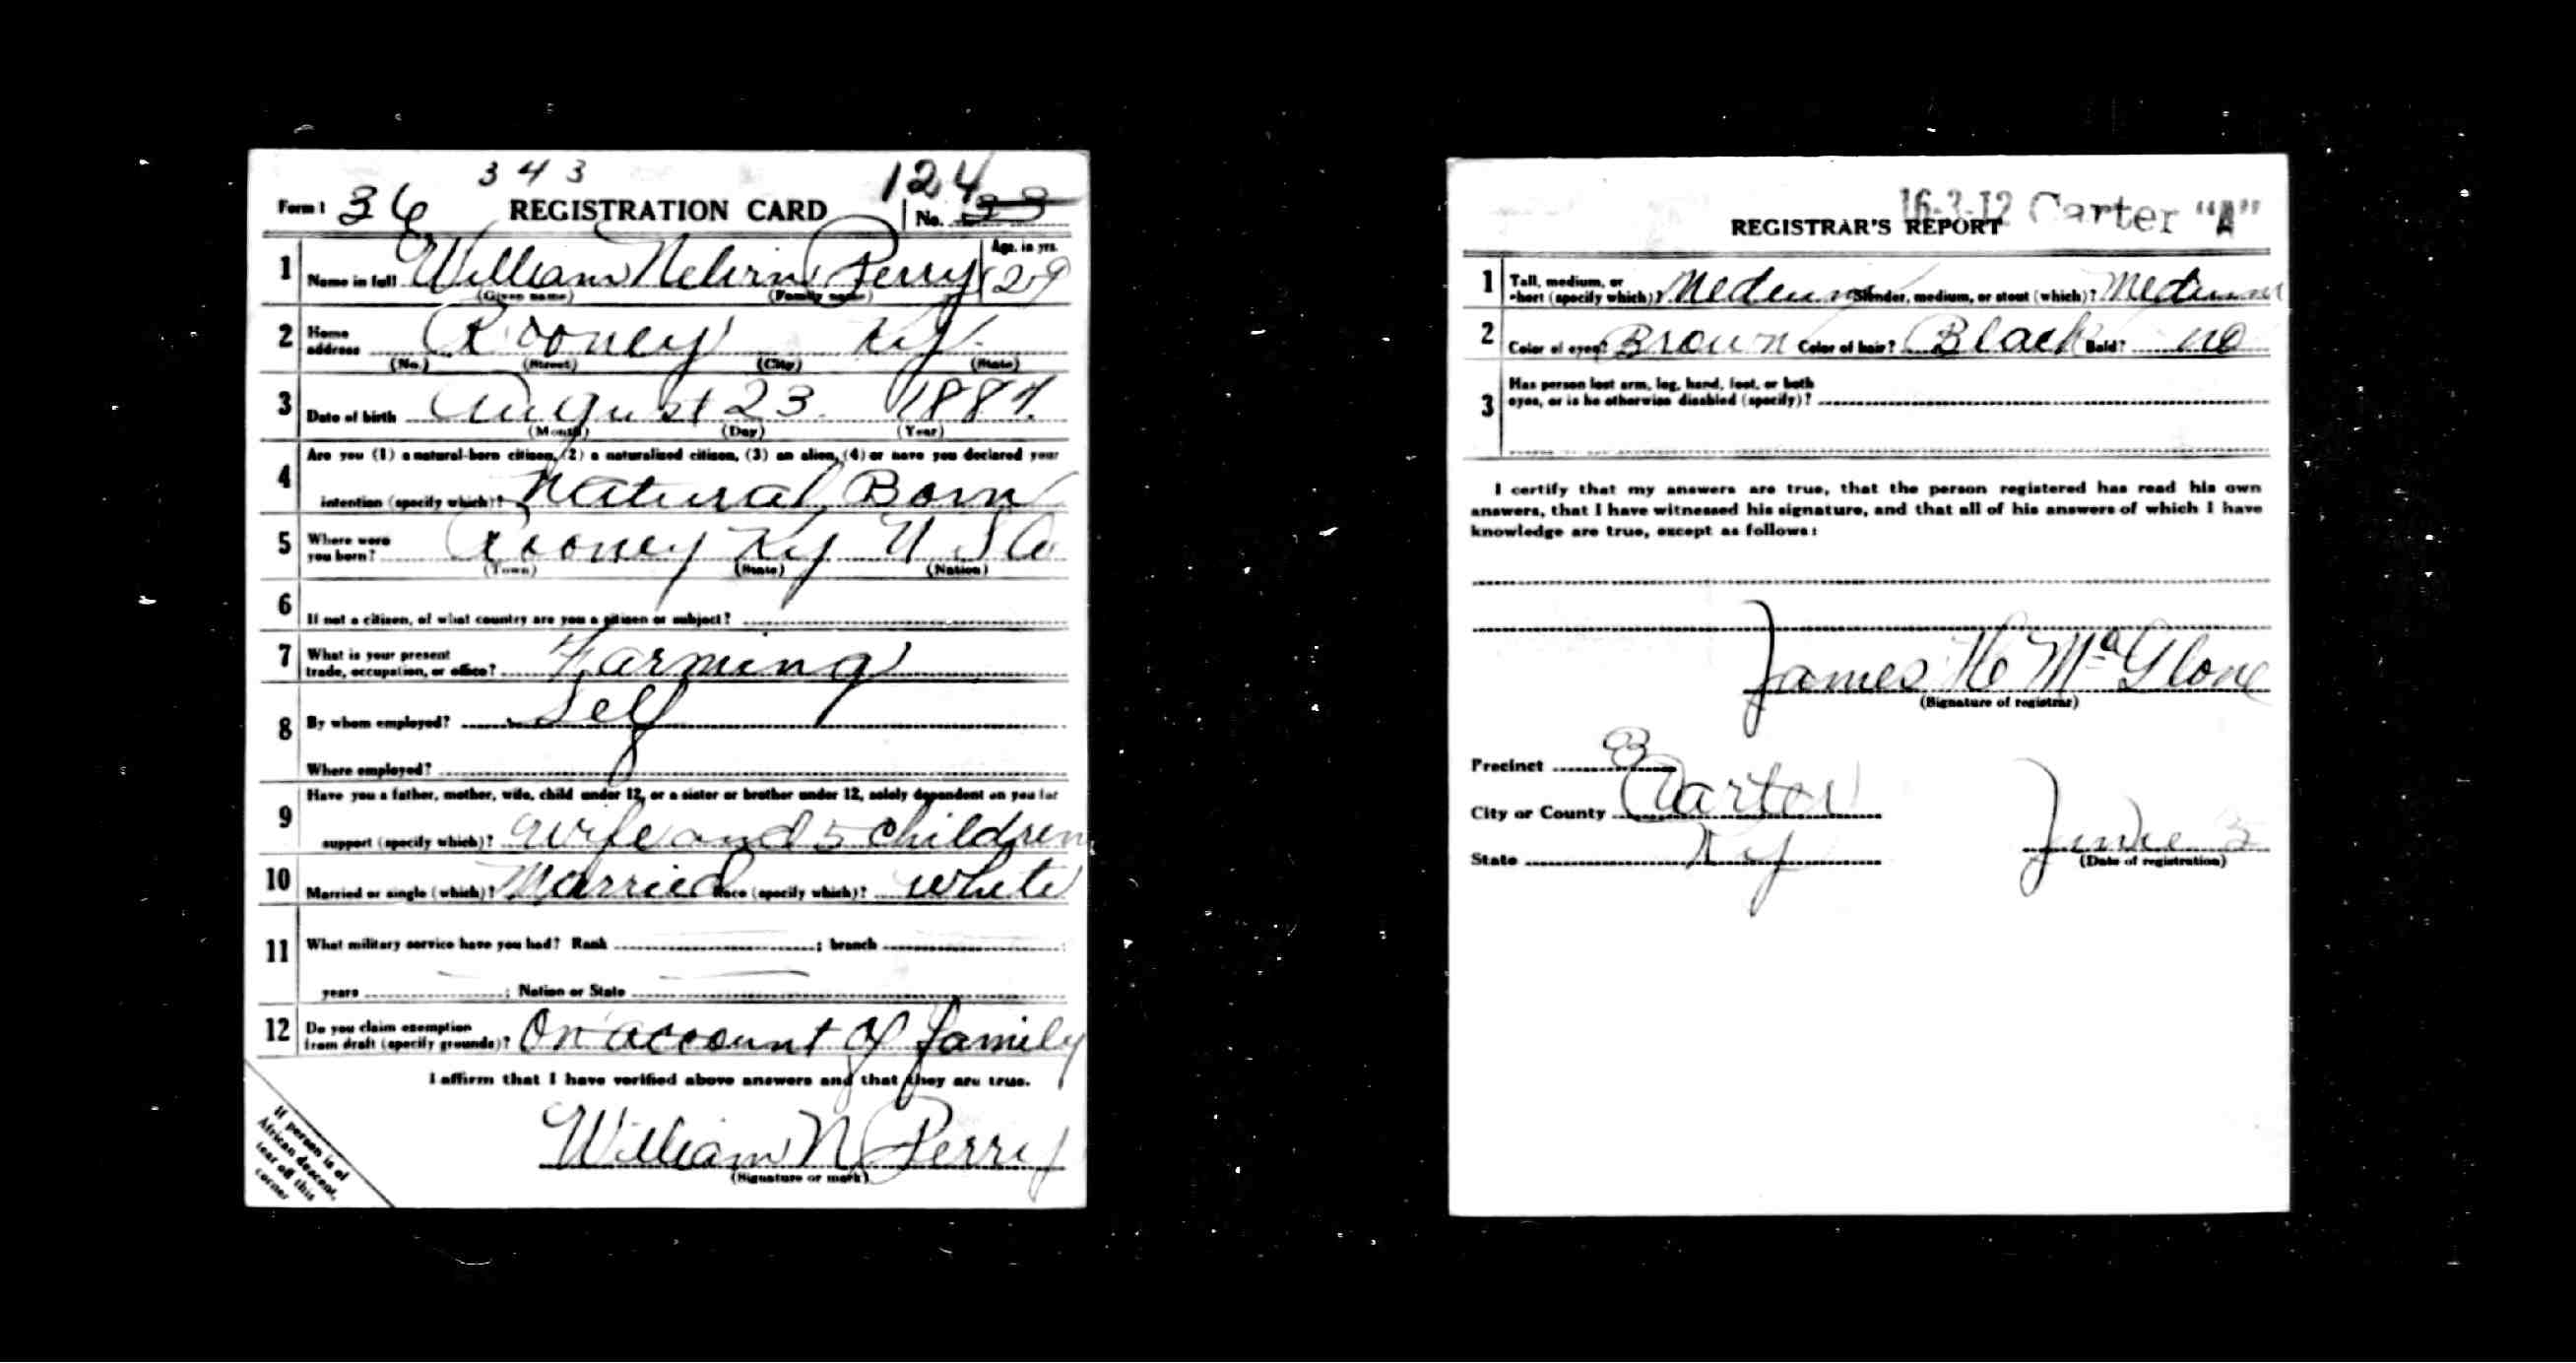 343
124
Form 1 36 REGISTRATION CARD No. 33
1 Name in full William Nelvin Perry Age, in yrs. 29
(Given name) (Family name)
2 Home address Rooney Ky.
(No.) (Street) (City) (State)
3 Date of birth August 23 1887
(Month) (Day) (Year)
4 Are you (1) a natural-born citizen, (2) a naturalized citizen, (3) an alien, (4) or have you declared your
intention (specify which)? Natural Born
5 Where were you born? Rooney Ky U S A
(Town) (State) (Nation)
6 If not a citizen, of what country are you a citizen or subject?
7 What is your present trade, occupation, or office? Farming
8 By whom employed? Self
Where employed?
9 Have you a father, mother, wife, child under 12, or a sister or brother under 12, solely dependent on you for
support (specify which)? Wife and 5 children
10 Married or single (which)? Married Race (specify which)? White
11 What military service have you had? Rank ; branch ;
years ; Nation or State
12 Do you claim exemption from draft (specify grounds)? On account of family
I affirm that I have verified above answers and that they are true.
William N Perry
(Signature or mark)
If person is of
African descent,
tear off this
corner
16-3-12 Carter "A"
REGISTRAR'S REPORT
1 Tall, medium, or short (specify which)? Medium Slender, medium, or stout (which)? Medium
2 Color of eyes? Brown Color of hair? Black Bald? no
3 Has person lost arm, leg, hand, foot, or both
eyes, or is he otherwise disabled (specify)?
I certify that my answers are true, that the person registered has read his own
answers, that I have witnessed his signature, and that all of his answers of which I have
knowledge are true, except as follows:
James H McGlone
(Signature of registrar)
Precinct 8
City or County Carter
State Ky June 5
(Date of registration)